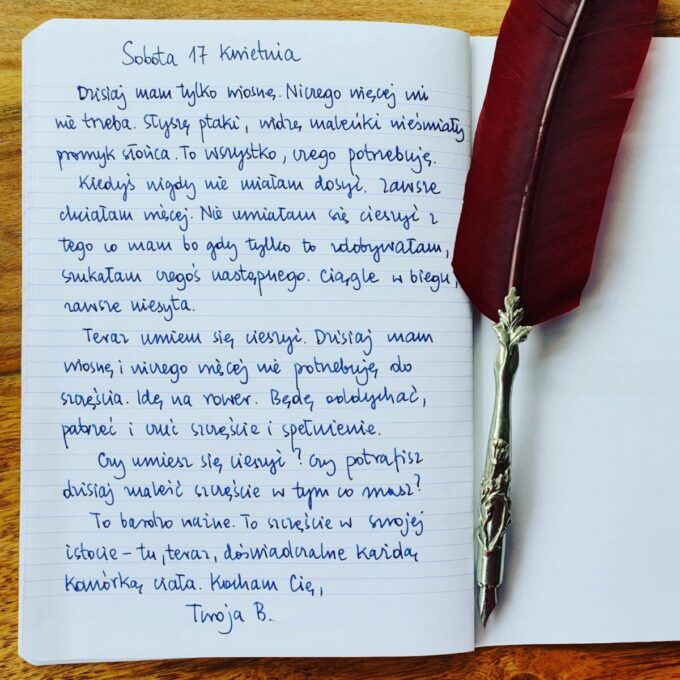 Sobota 17 kwietnia
Dzisiaj mam tylko wiosnę. Niczego więcej mi
nie trzeba. Słyszę ptaki, widzę maleńki nieśmiały
promyk słońca. To wszystko, czego potrzebuję.
Kiedyś nigdy nie miałam dosyć. Zawsze
chciałam więcej. Nie umiałam się cieszyć z
tego co mam bo gdy tylko to zdobywałam,
szukałam czegoś następnego. Ciągle w biegu,
zawsze niesyta.
Teraz umiem się cieszyć. Dzisiaj mam
wiosnę i niczego więcej nie potrzebuję do
szczęścia. Idę na rower. Będę oddychać,
patrzeć i czuć szczęście i spełnienie.
Czy umiesz się cieszyć? Czy potrafisz
dzisiaj znaleźć szczęście w tym co masz?
To bardzo ważne. To szczęście w swojej
istocie – tu, teraz, doświadczalne każdą
komórką ciała. Kocham Cię,
Twoja B.